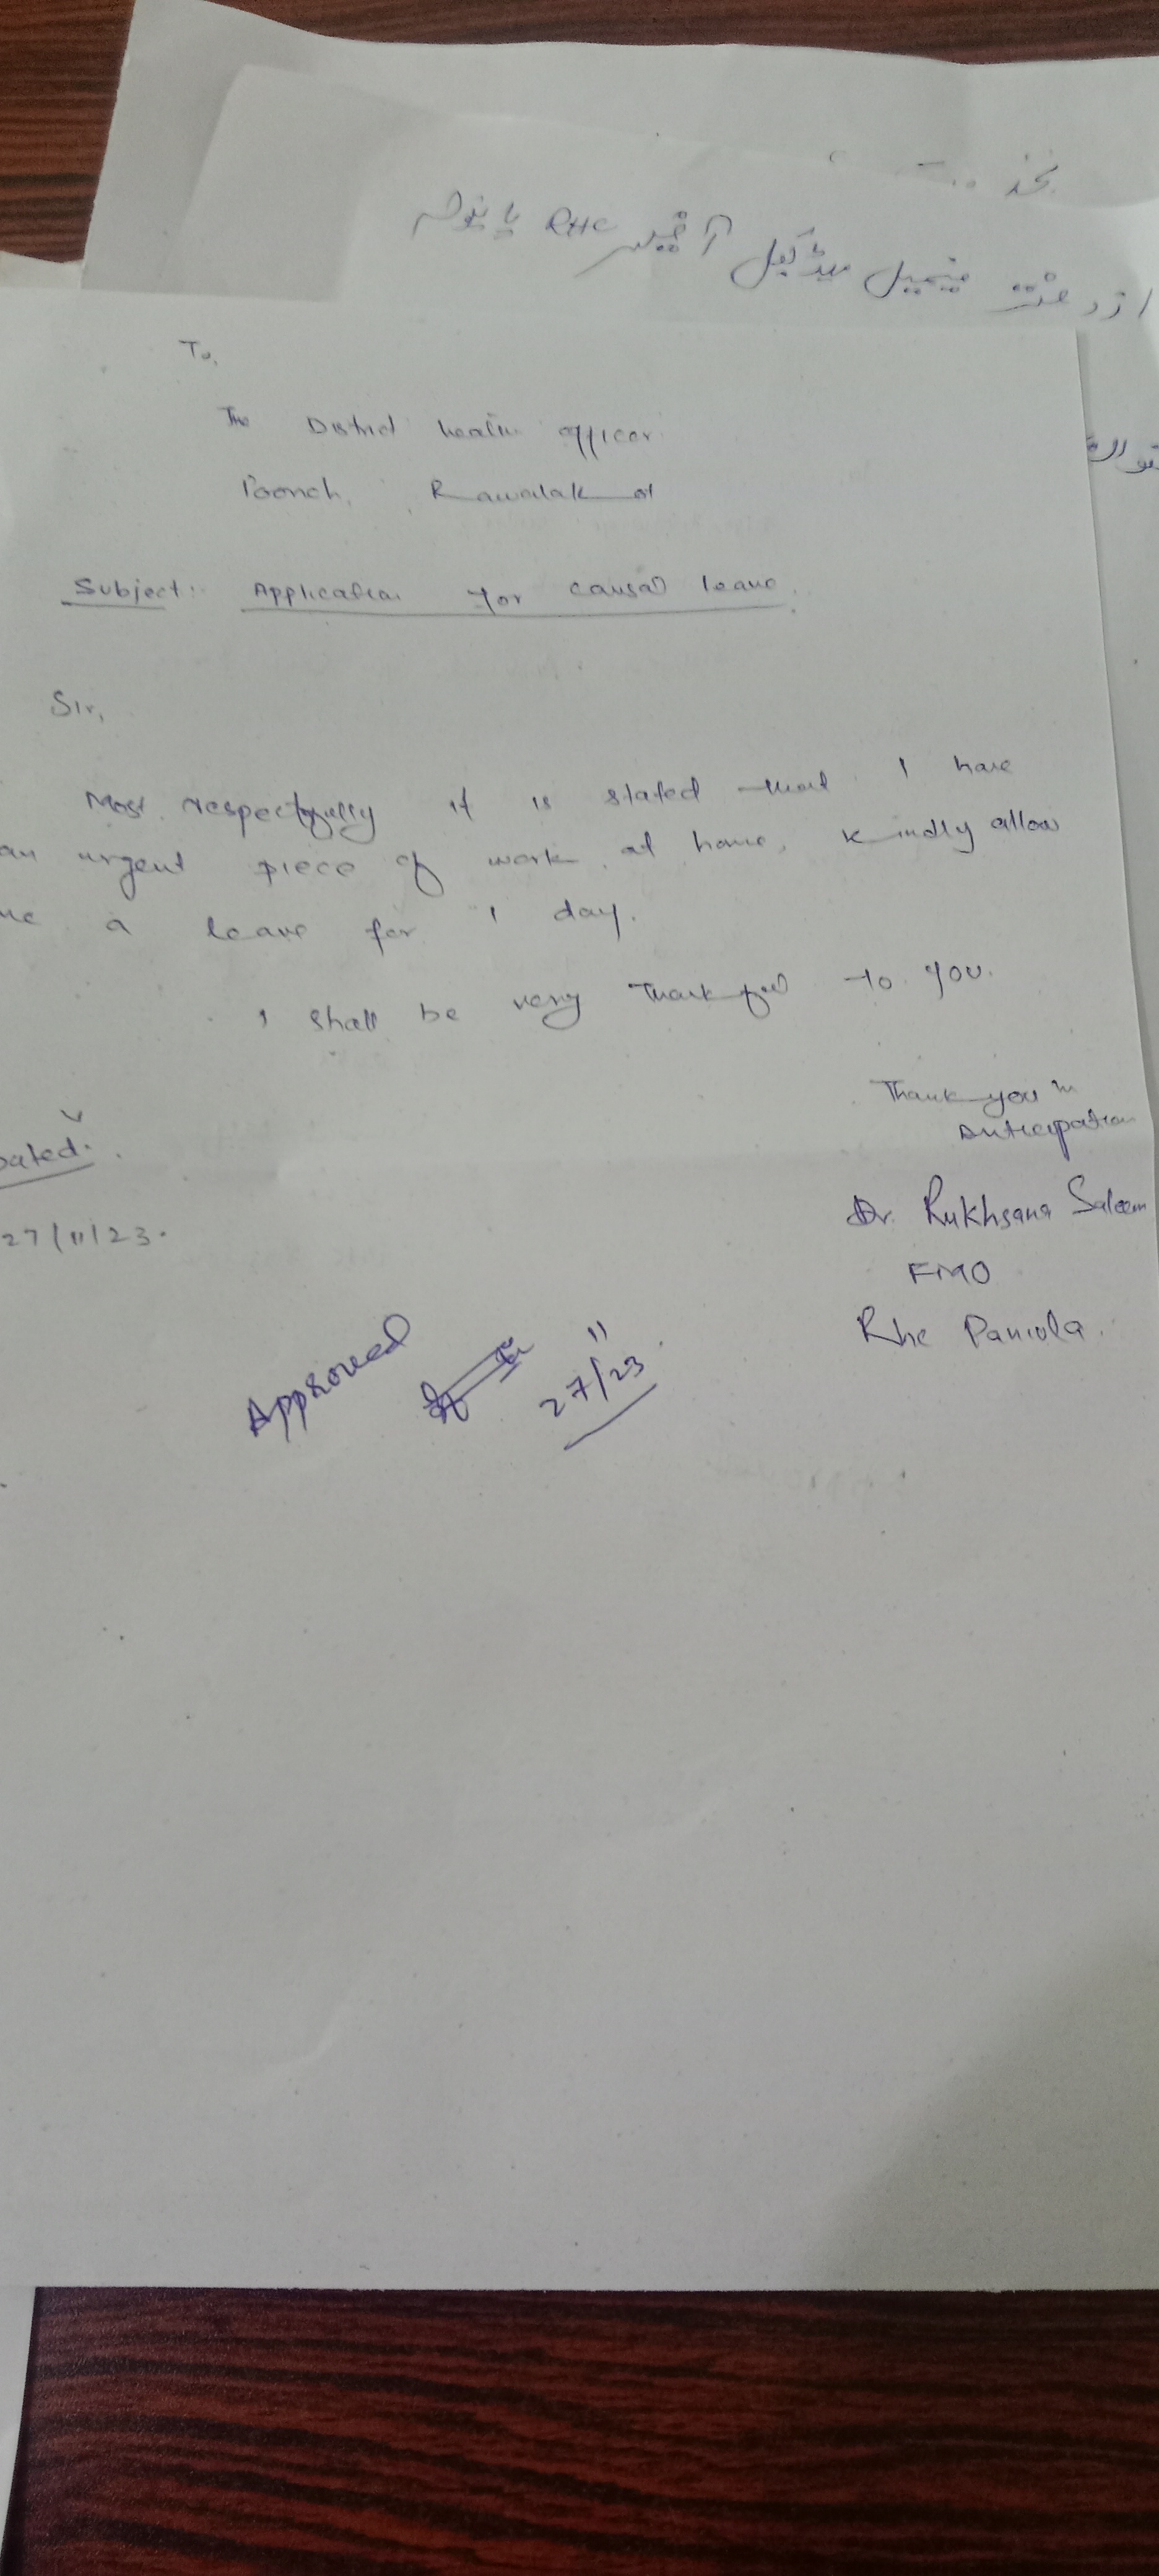 بخدمت
از دفتر فیمیل میڈیکل آفیسر RHC پانیولہ
To,
The District health officer
Poonch, Rawalakot
Subject: Application for causal leave.
Sir,
Most respectfully it is stated that I have
an urgent piece of work at home, kindly allow
me a leave for 1 day.
I shall be very thankful to you.
Thank you in
Anticipation
Dated:
27/11/23.
Dr. Rukhsana Saleem
FMO
Rhc Paniola.
Approved
11
27/23